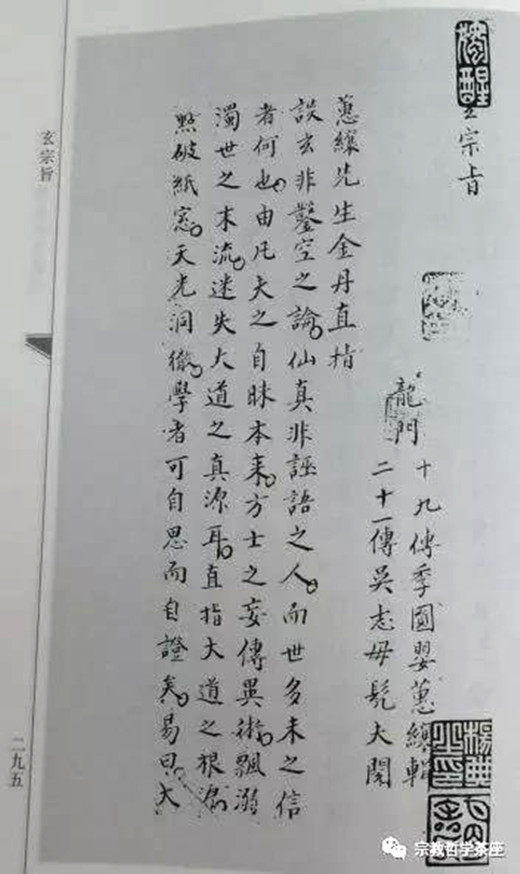 宗旨
龍門
十九傳季國嬰蕙纕輯
二十一傳吳志毋大閱
蕙纕先生金丹直指
談玄非鑿空之論。仙真非誣語之人。而世多未之信
者何也。由凡夫之自昧本来。方士之妄傳異術。飄溺
濁世之末流。迷失大道之真源耳。直指大道之根源
點破紙窓。天光洞徹。學者可自思而自證矣。易曰。大
玄宗旨
二九五
宗教哲学茶座